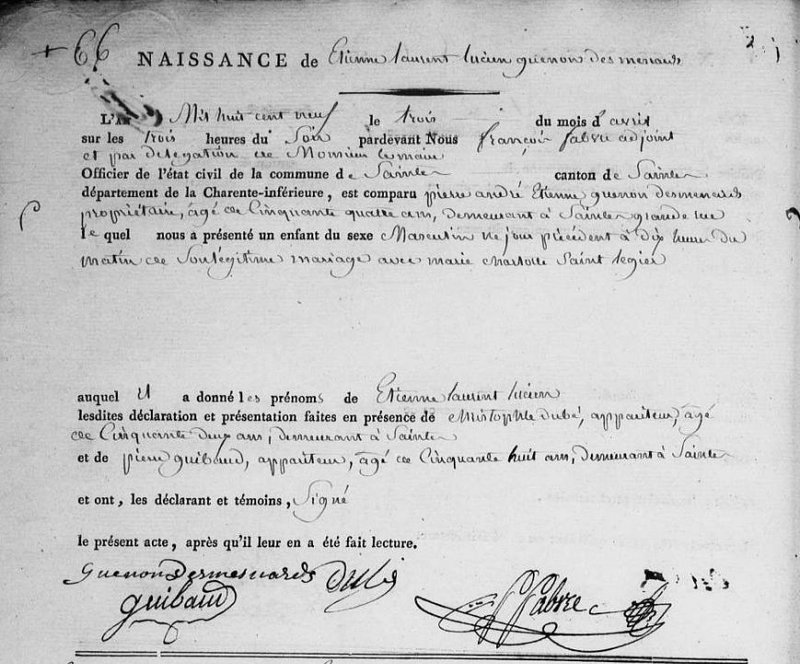 + 66 NAISSANCE de Etienne laurent lucien guenon des mesnards
L'An Mil huit cent neuf le trois du mois d'avril
sur les trois heures du Soir pardevant Nous françois fabre adjoint
et par délégation de Monsieur le maire
Officier de l'état civil de la commune de Saintes canton de Saintes
département de la Charente-inférieure, est comparu pierre andré Etienne guenon desmenards
propriétaire, âgé de Cinquante quatre ans, demeurant à Saintes grande rue
le quel nous a présenté un enfant du sexe Masculin né jour précédent à dix heures du
matin de Son légitime mariage avec marie charlotte Saint legier
auquel il a donné les prénoms de Etienne laurent lucien
lesdites déclaration et présentation faites en présence de christophle dubé, appariteur, âgé
de Cinquante deux ans, demeurant à Saintes
et de pierre guibaud, appariteur, âgé de Cinquante huit ans, demeurant à Saintes
et ont, les déclarant et témoins, Signé
le présent acte, après qu'il leur en a été fait lecture.
Guenon Desmesnards Dubé
guibaud fabre